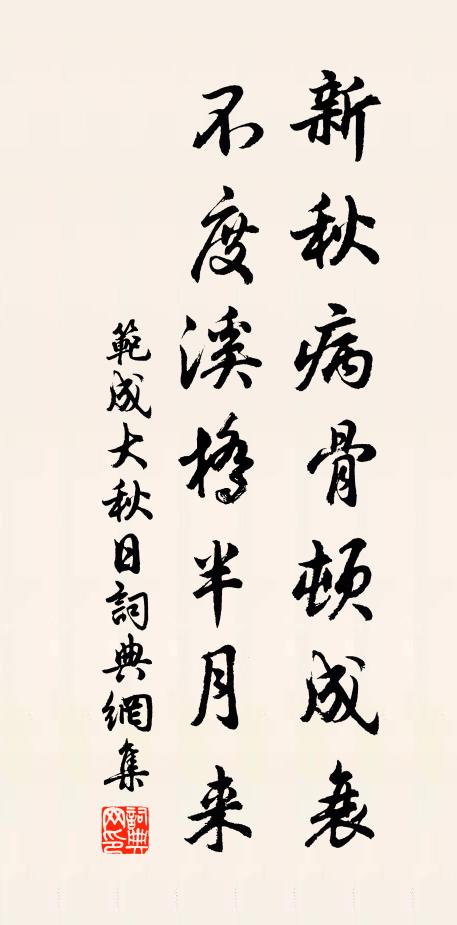 新秋病骨頓成衰
不度溪橋半月来
範成大秋日詞典網集
詞典網印